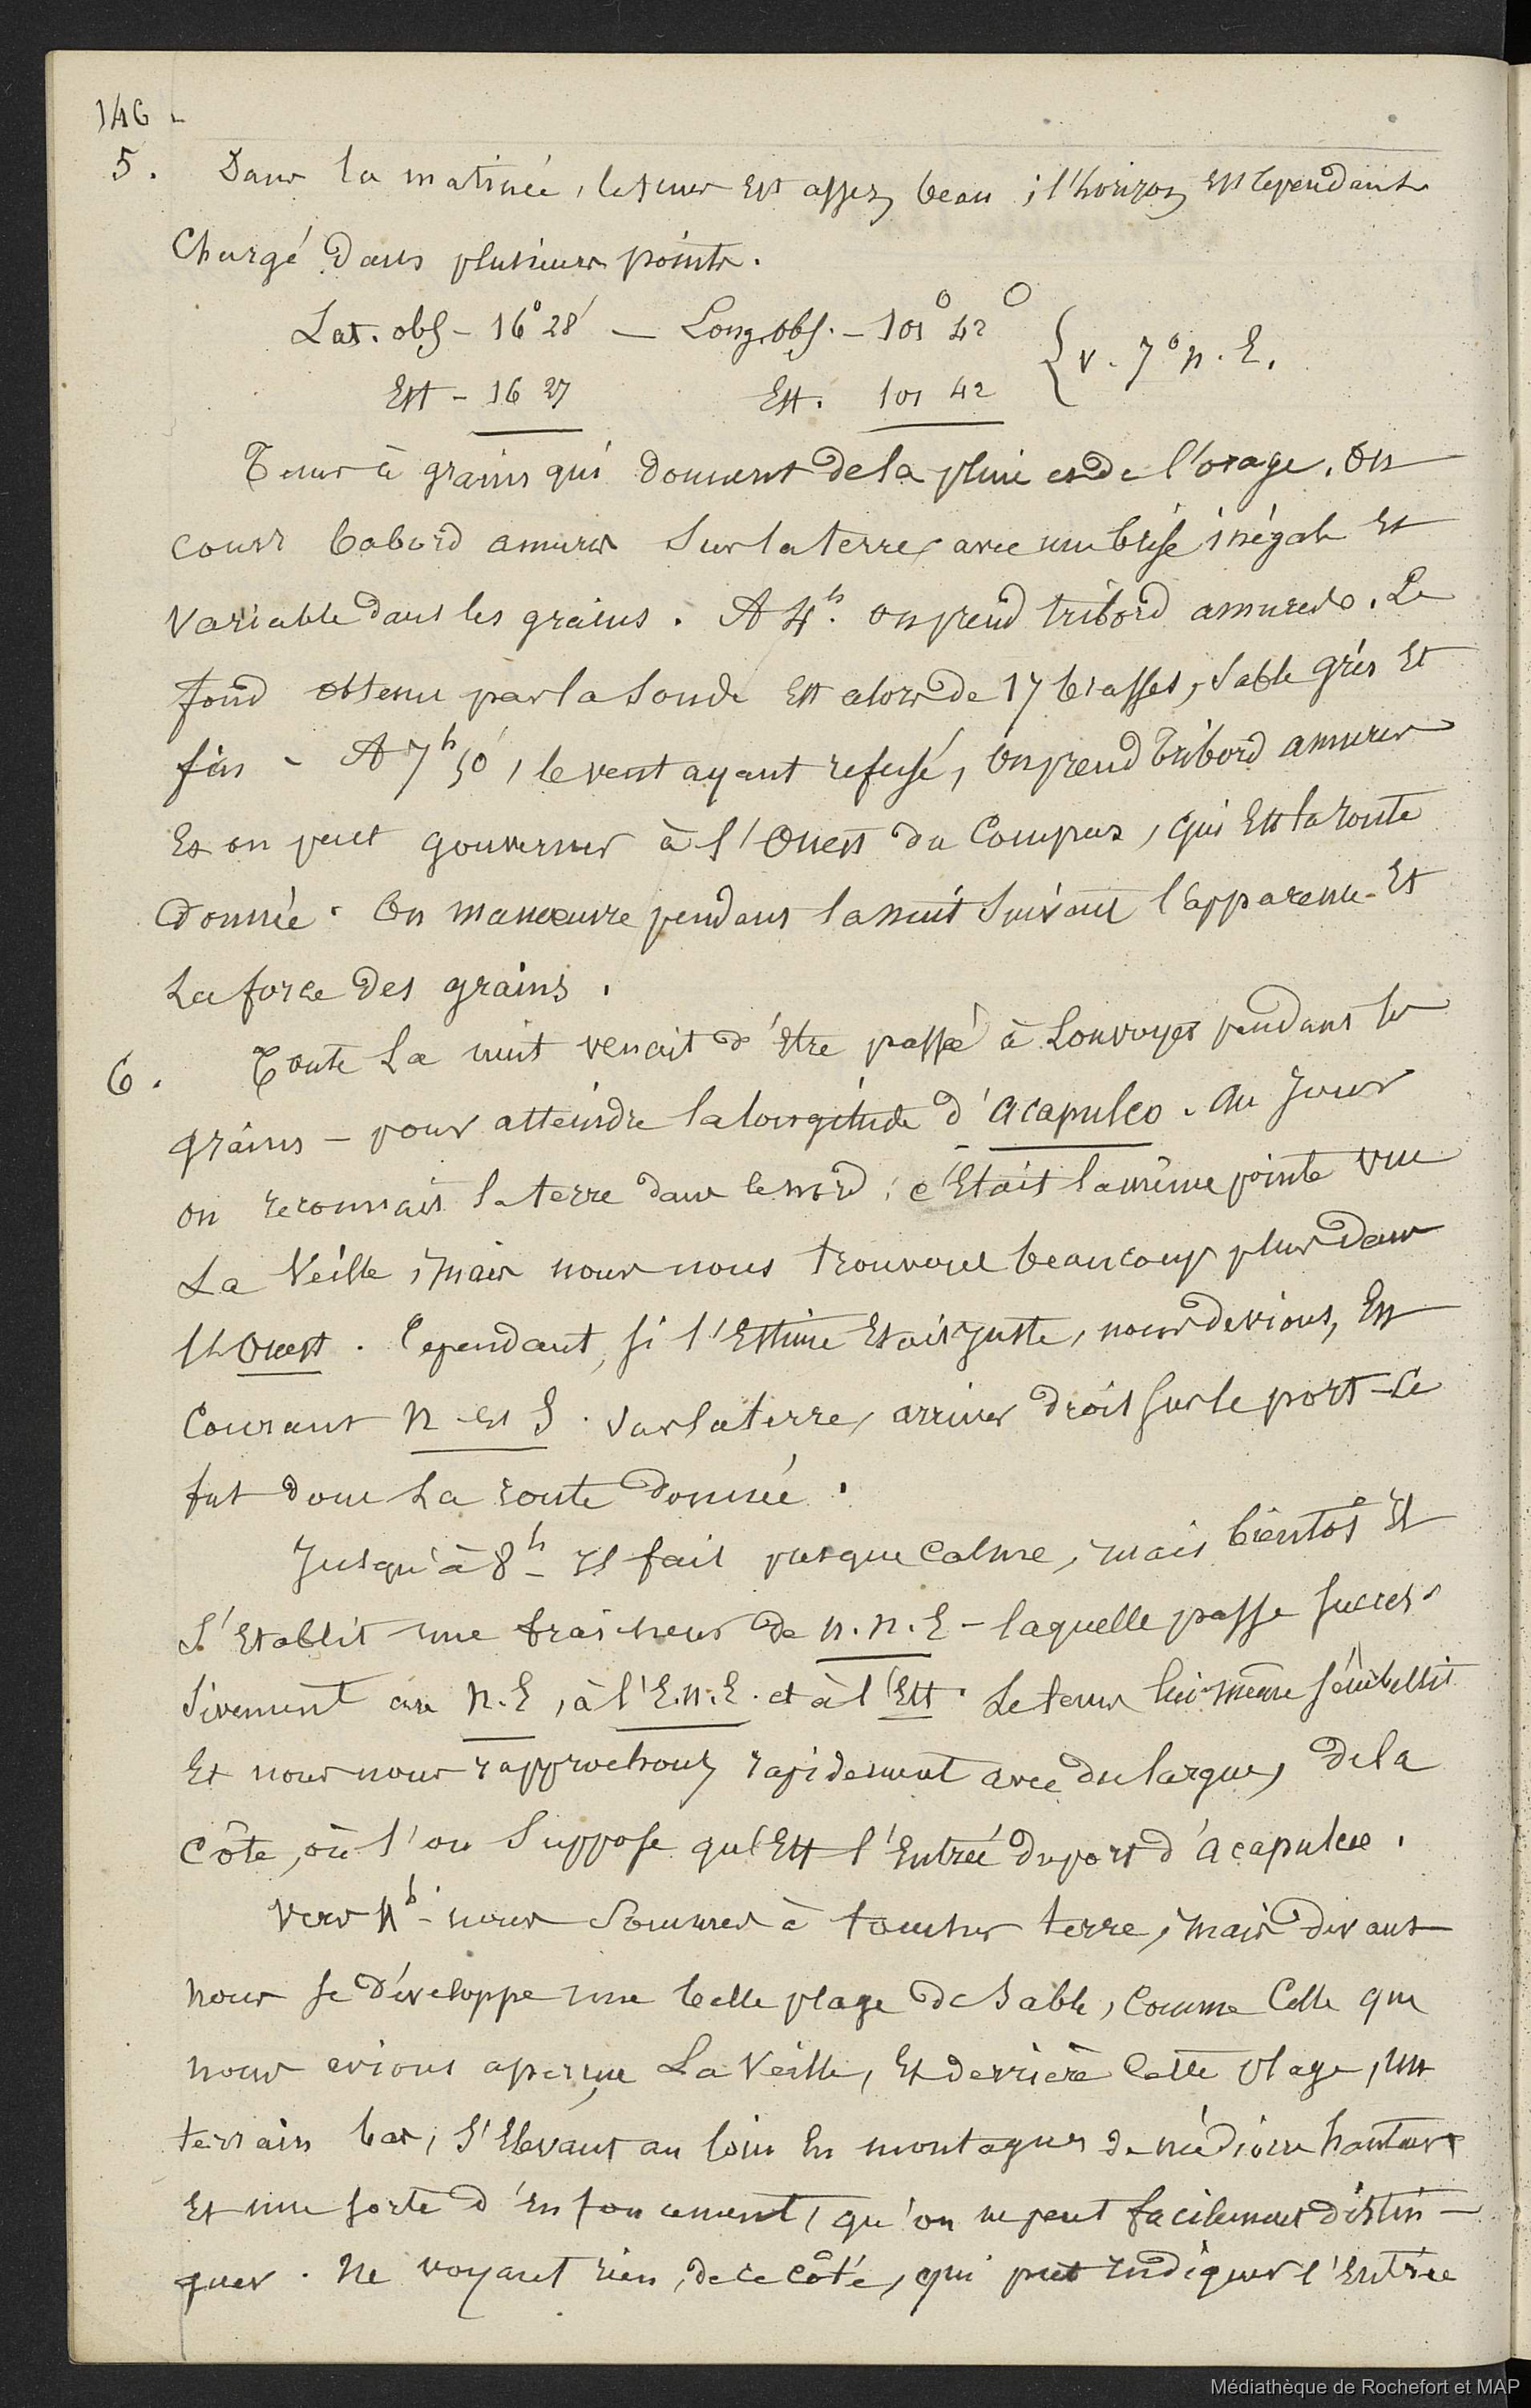 146 -
5. Dans la matinée, le temps est assez beau ; l'horizon est cependant
chargé dans plusieurs points.
Lat. obs - 16° 28' — Long. obs. - 101° 42 O
Est - 16 27 Est. 101 42 { v. 7° n. E.
Temps à grains qui donnent de la pluie et de l'orage. On
court babord amures sur la terre, avec une brise inégale et
variable dans les grains. A 4h. on prend tribord amures. Le
fond obtenu par la sonde est alors de 17 brasses, sable gris et
fin - A 7h 50', le vent ayant refusé, on prend tribord amures
et on peut gouverner à l'Ouest du compas, qui est la route
donnée. On manœuvre pendant la nuit suivant l'apparence et
la force des grains.
6. Toute la nuit venait d'être passée à louvoyer pendant les
grains - pour atteindre la longitude d'Acapulco. Au jour
on reconnait la terre dans le nord ; c'était la même pointe vue
la veille, mais nous nous trouvons beaucoup plus dans
l'Ouest. Cependant, si l'estime était juste, nous devions, en
courant N et S. sur la terre, arriver droit sur le port - Ce
fut donc la route donnée.
Jusqu'à 8h - il fait presque calme, mais bientôt il
s'établit une fraicheur de n.n.E - laquelle passe succes-
sivement au N.E, à l'E.n.E. et à l'Est. Le temps lui-même s'embellit
et nous nous rapprochons rapidement avec du largue, de la
côte, où l'on suppose qu'est l'entrée du port d'Acapulco.
Vers 11h - nous sommes à toucher terre, mais devant
nous se développe une belle plage de sable, comme celle que
nous avions aperçue la veille, et derrière cette plage, un
terrain bas, s'élevant au loin en montagnes de médiocre hauteur
et une sorte d'enfoncement, qu'on ne peut facilement distin-
guer. Ne voyant rien, de ce côté, qui put indiquer l'entrée
Médiathèque de Rochefort et MAP